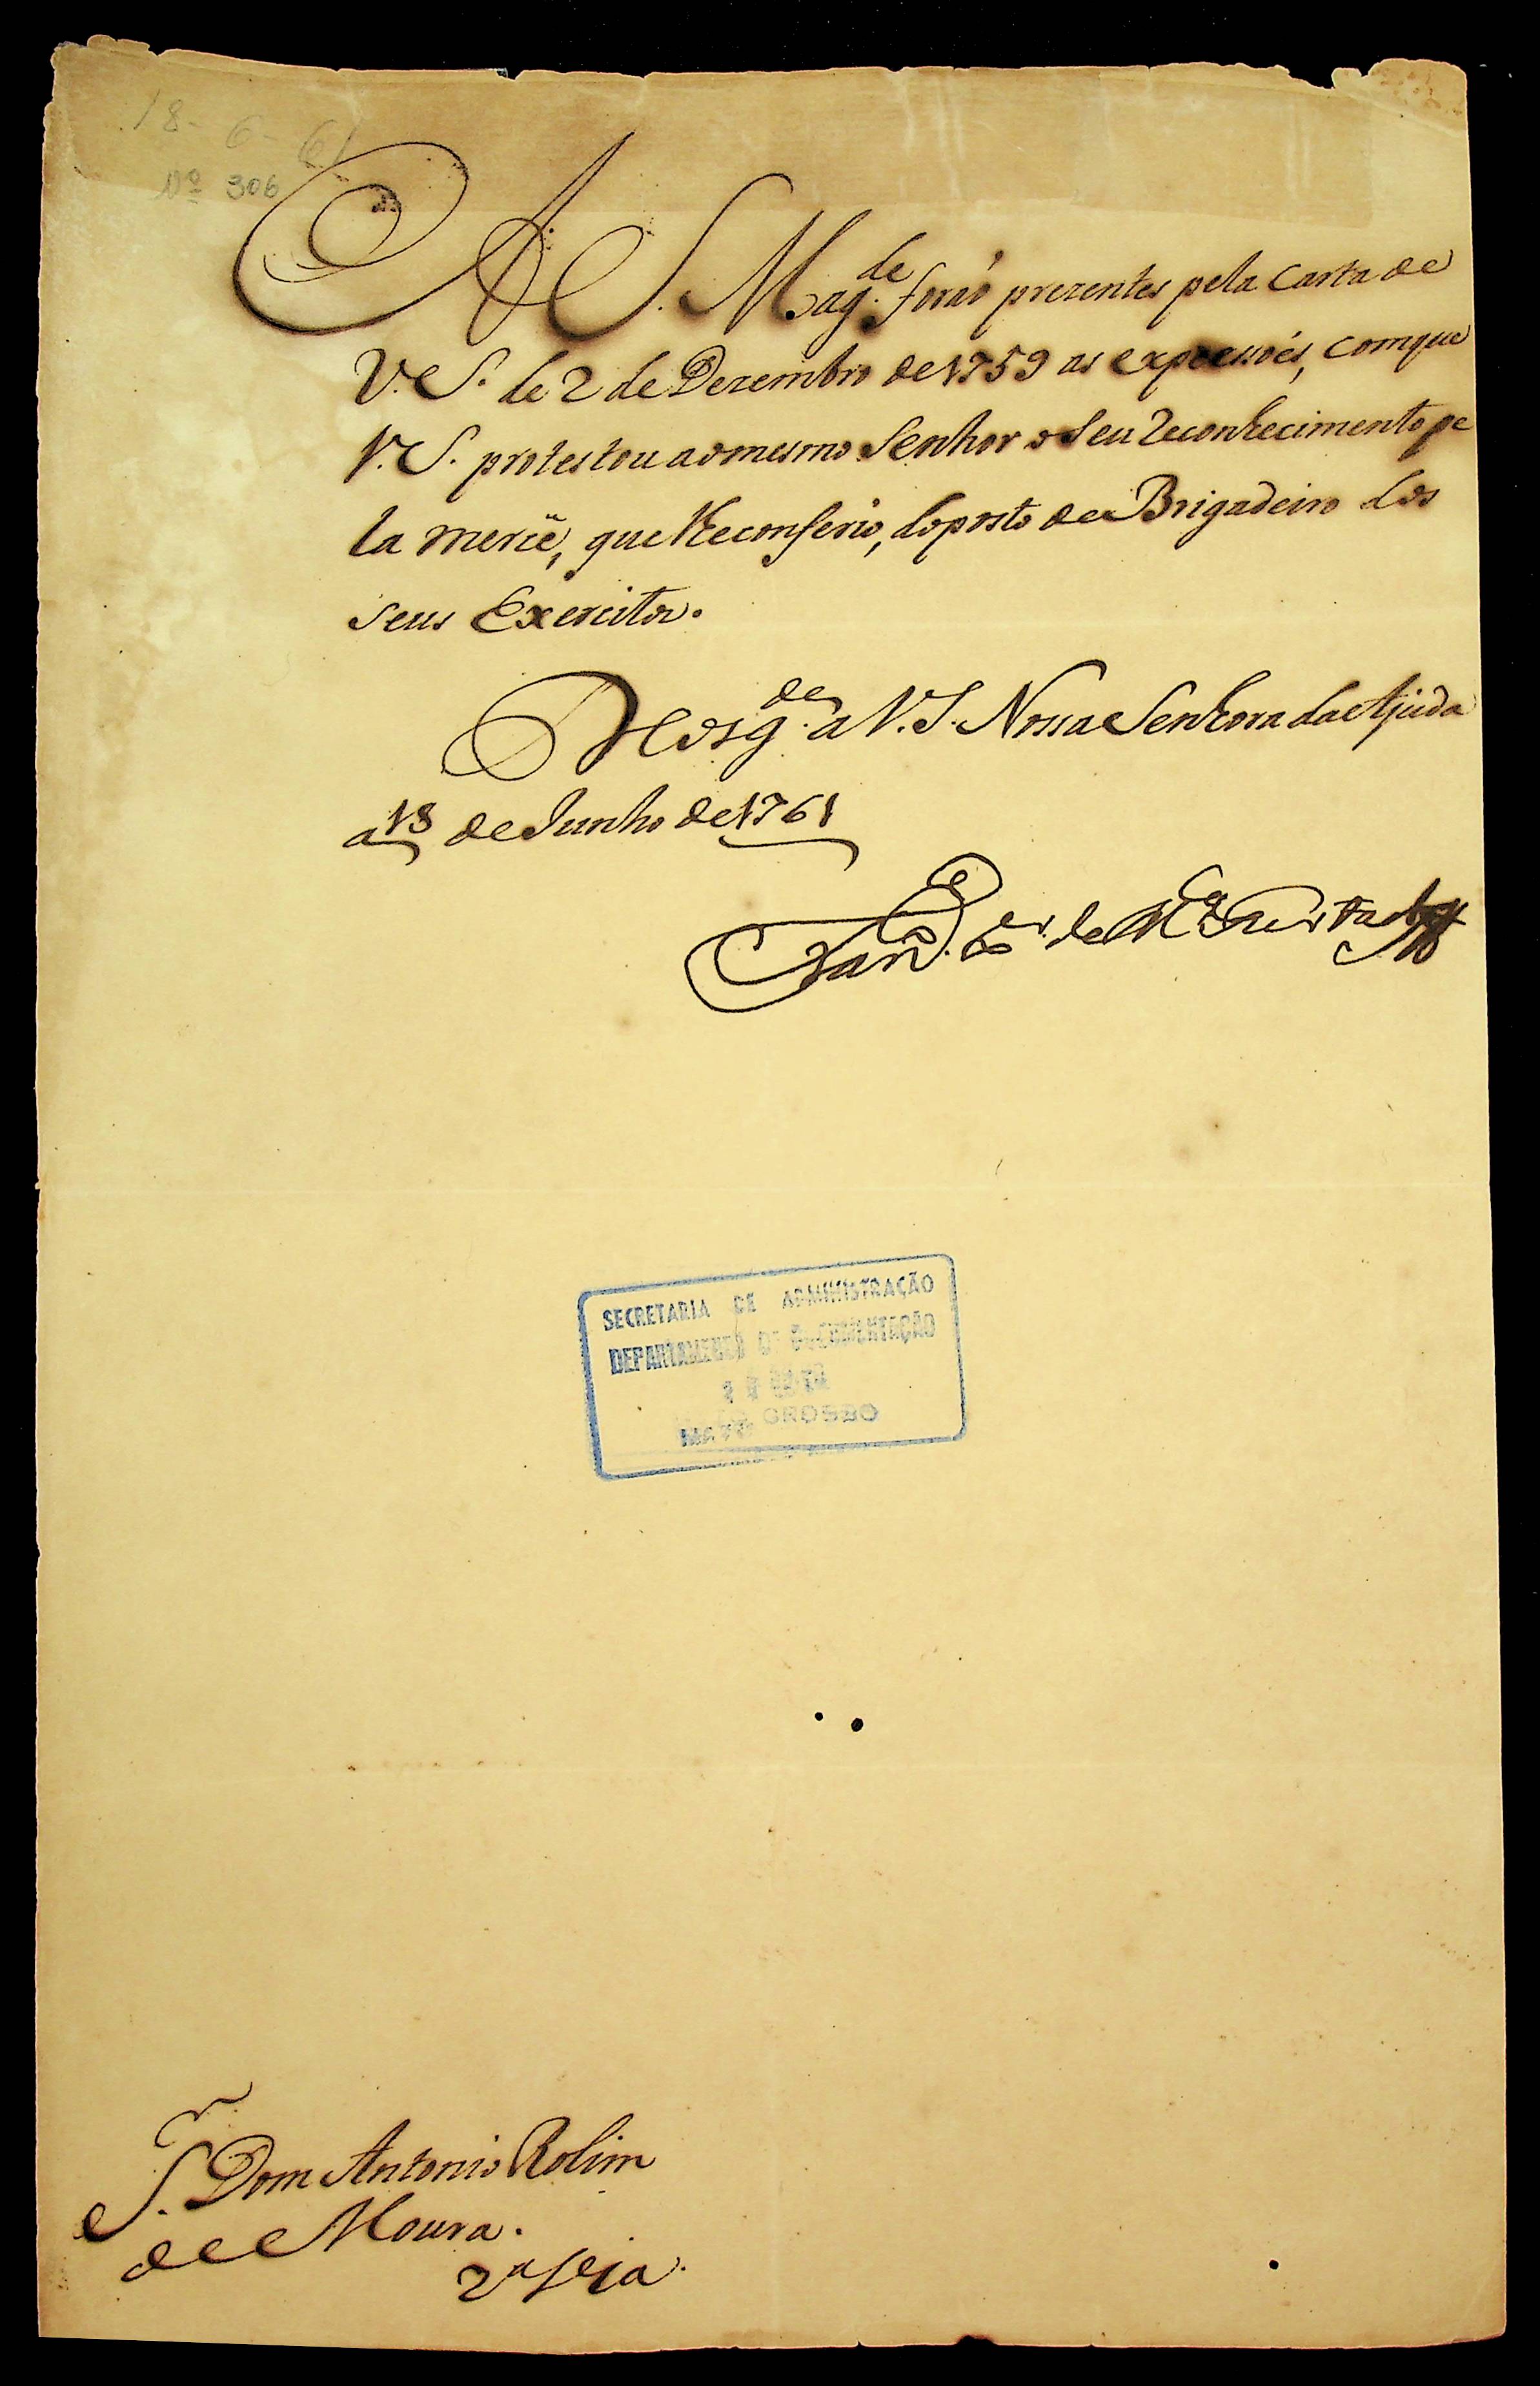 18-6-61
Nº 306
A S. Mag.de foraõ prezentes pela Carta de
V. S. de 2 de Dezembro de 1759 as expressoẽs, comque
V. S. protestou aomesmo Senhor o seu Reconhecimento pe
la mercê, que lheconferio, doposto de Brigadeiro dos
seus Exercitos.
Deos g.de a V. S. Nossa Senhora da Ajuda
a 18 de Junho de 1761
Fran.co X.er de M.ça Furtado
SECRETARIA DE ADMINISTRAÇÃO
DEPARTAMENTO DE DOCUMENTAÇÃO
MATO GROSSO
S.r Dom Antonio Rolim
de Moura.
2ª